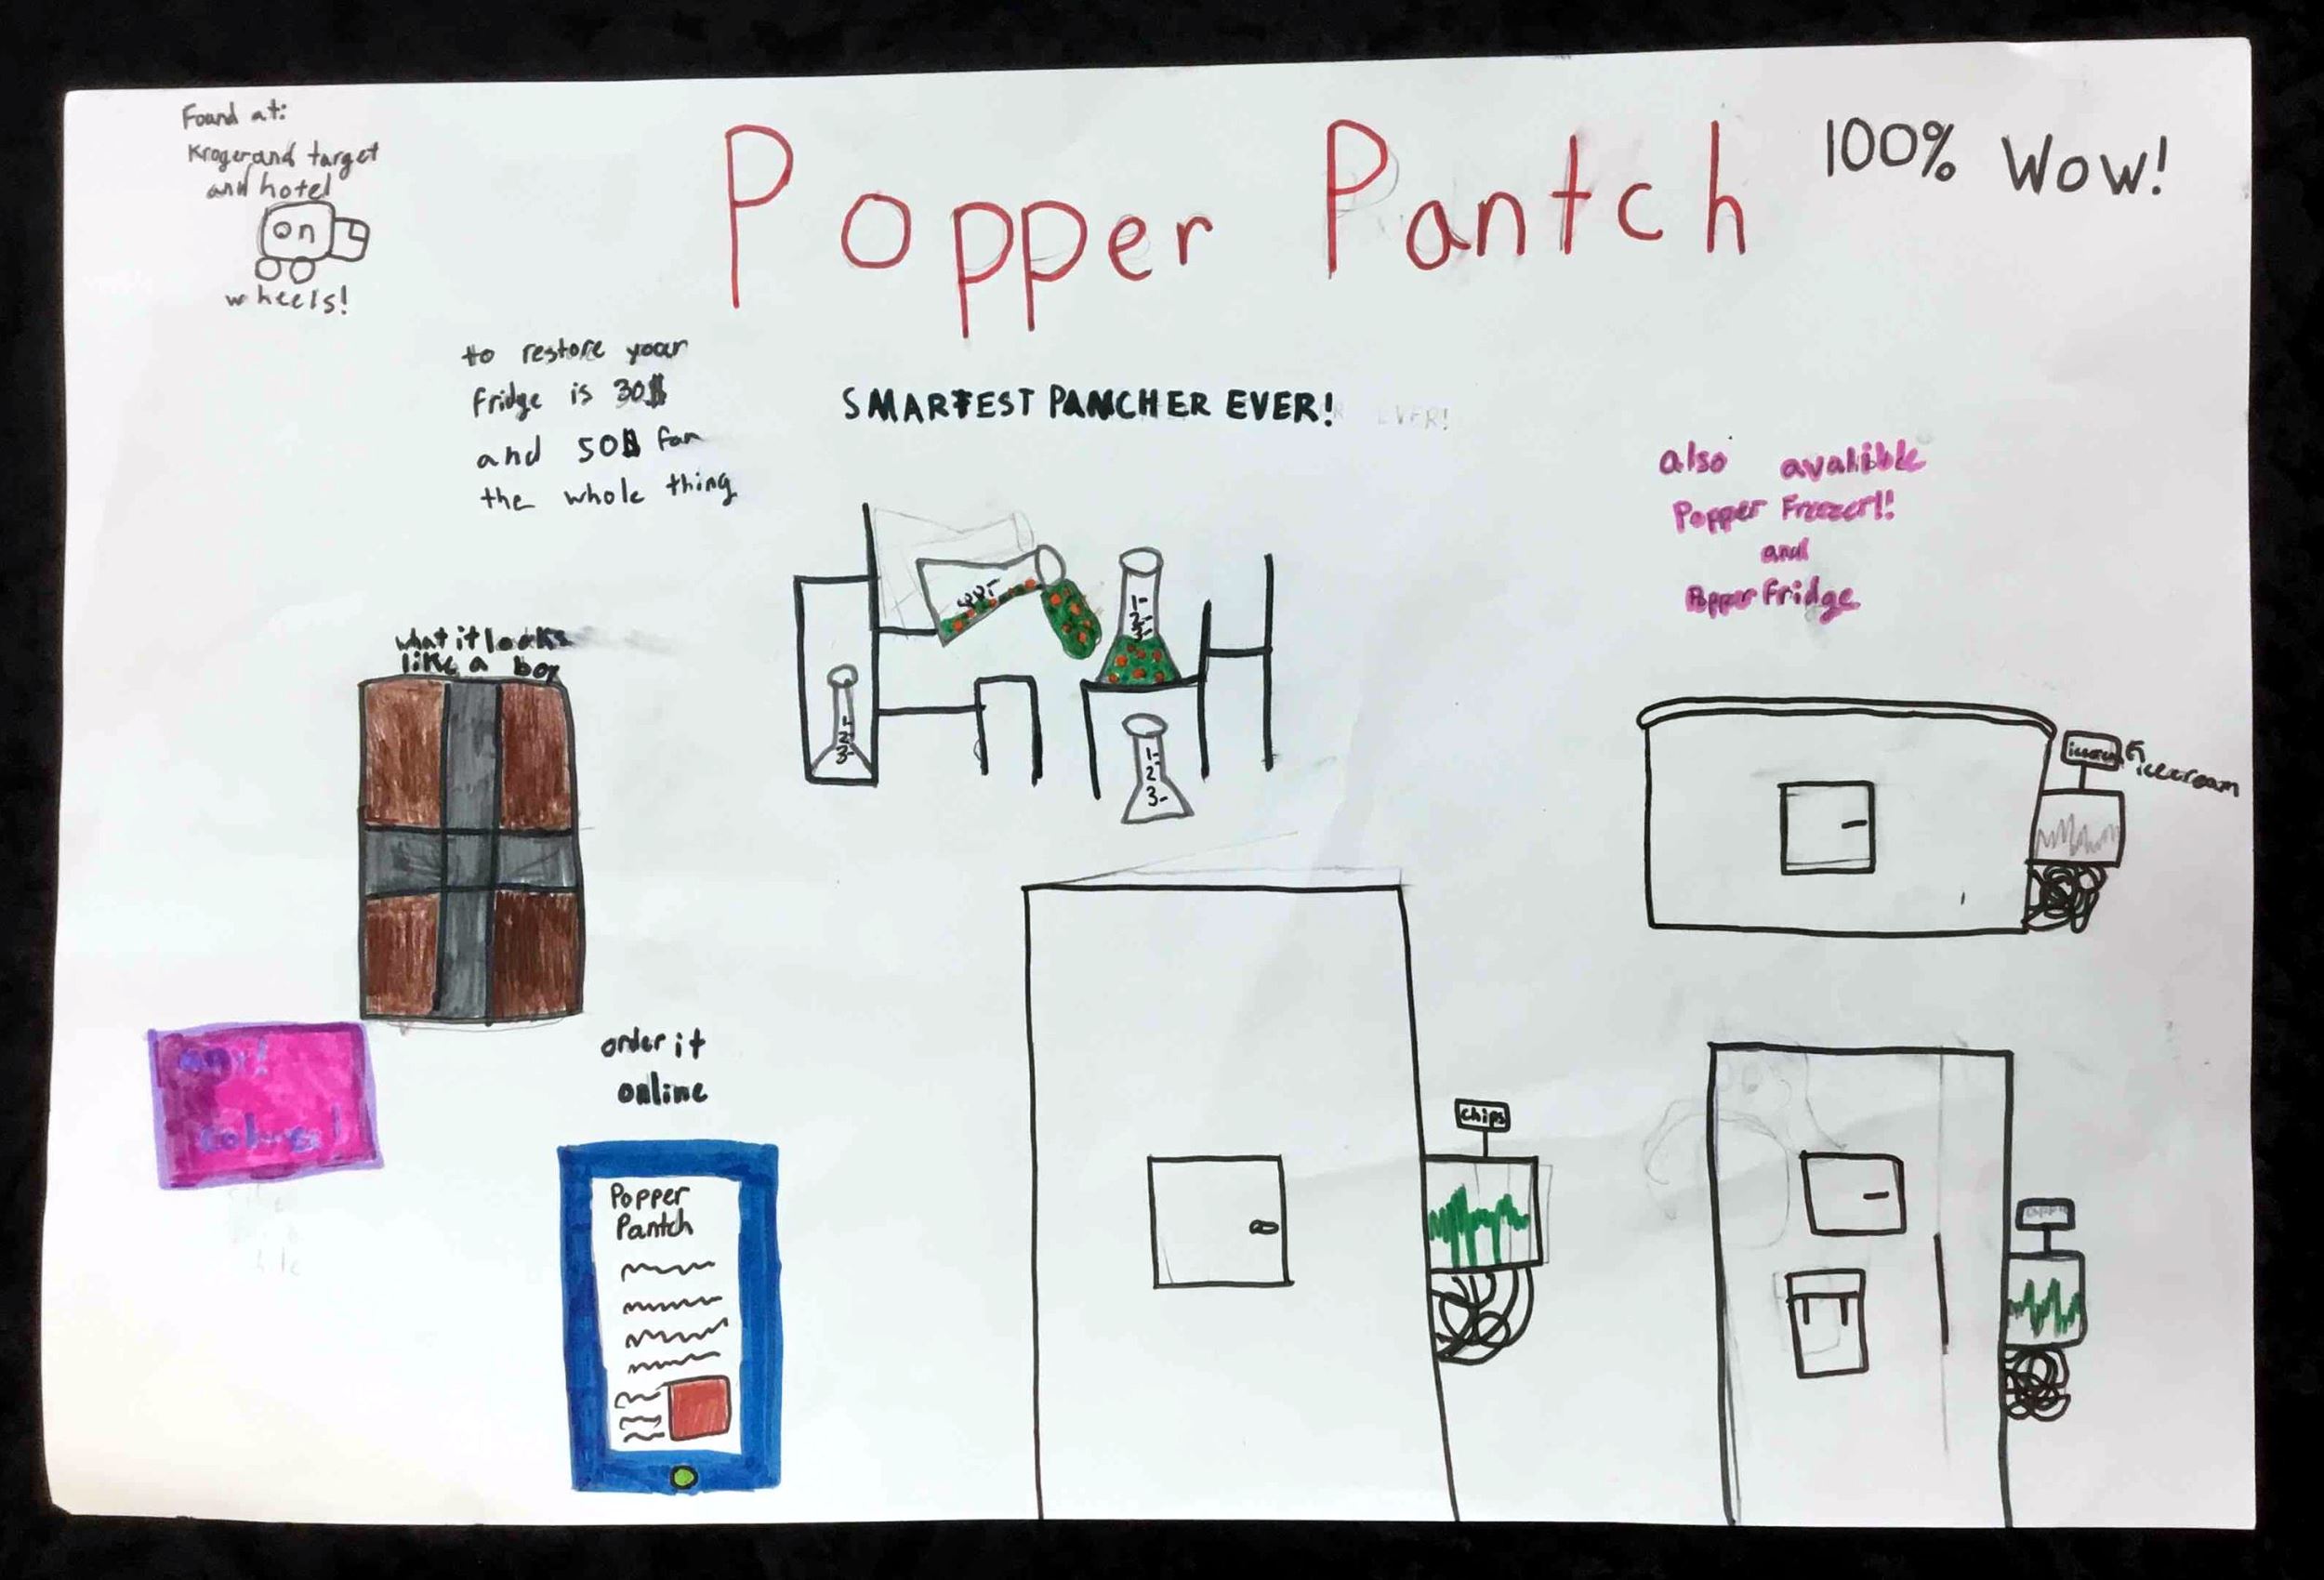 Found at:
Kroger and target
and hotel
on
wheels!
Popper Pantch
100% Wow!
to restore your
fridge is 30$
and 50$ for
the whole thing
SMARTEST PANCHER EVER!
also avalible
Popper Freezer!!
and
Popper Fridge
1-
2-
3-
1-
2-
3-
1-
2-
3-
what it looks
like a box
icecream
any!
colors!
order it
online
Popper
Pantch
chips